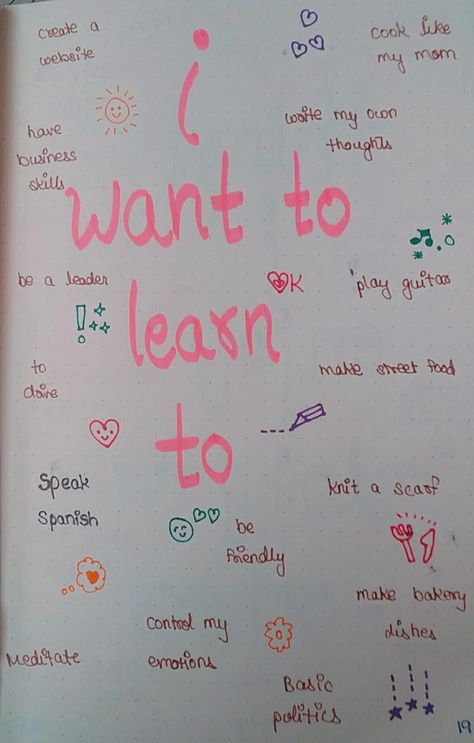 create a
website
cook like
my mom
i
have
business
skills
write my own
thoughts
want to
be a leader
OK
play guitar
learn
to
make street food
to
Speak
Spanish
Knit a scarf
be
friendly
make bakery
dishes
Control my
emotions
Meditate
Basic
politics
19